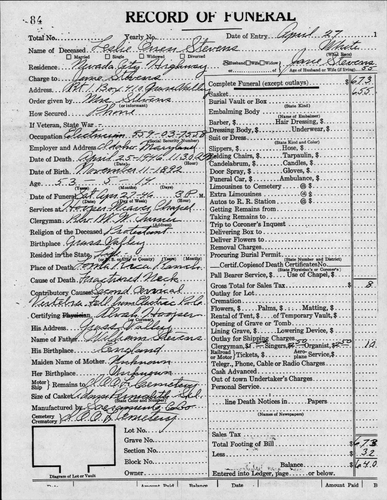 84
RECORD OF FUNERAL
Total No. Yearly No. Date of Entry April 27
Name of Deceased Leslie Stevens White
Married Single Widowed Divorced
Residence Nevada City Highway Jane Stevens 55
Age of Husband or Wife (if living)
Charge to Jane Stevens
Complete Funeral (except outlays) $ 673
Rt 1 Box 410 Grass Valley
Casket 655
Order given by Mrs Stevens
Burial Vault or Box
(State Kind)
How Secured Phone
Embalming Body
(Name of Embalmer)
If Veteran, State War
Barber, $ Hair Dressing, $
Dressing Body, $ Underwear, $
Occupation Electrician 559-03-7558
Suit or Dress
(Social Security Number)
Slippers, $ Hose, $
Employer and Address
(State Kind and Color)
Folding Chairs, $ Tarpaulin, $
Date of Death April 25-1946 11:30
Candelabrum, $ Candles, $
Date of Birth November 11-1892
Door Spray, $ Gloves, $
Age 53 5
Funeral Car, $ Ambulance, $
Limousines to Cemetery @
Date of Funeral 3 P.M.
Extra Limousines @
Services at Hooper Weaver Chapel
Autos to R. R. Station @
Getting Remains from
Clergyman Rev M. W.
Taking Remains to
Religion of the Deceased Protestant
Trip to Coroner's Inquest
Delivering Box to
Birthplace Grass Valley
Deliver Flowers to
Resided in the State Life
Removal Charges
Procuring Burial Permit
(State Number and District)
Place of Death Ranch
Certif.Copies Death Certificate
Cause of Death Fractured Neck
Pall Bearer Service, $ Use of Chapel, $
Contributory Causes Second Cervical
Gross Total for Sales Tax $ 8
Vertebra fall from Electric Pole
Outlay for Lot
Cremation
Certifying Physician Alvah Hooper
Flowers, $ Palms, $ Matting, $
His Address Grass Valley
Rental of Tent, $ of Temporary Vault, $
Opening of Grave or Tomb
Name of Father William Stevens
Lining Grave, $ Lowering Device, $
Birthplace England
Outlay for Shipping Charges
Clergyman, $ Singers, $ Organist, $ 10
Maiden Name of Mother Unknown
Railroad Motor Tickets, $ Aeroplane Service, $
Her Birthplace Unknown
Telegr., Phone, Cable or Radio Charges
Cash Advanced
Remains to I.O.O.F. Cemetery
Out of town Undertaker's Charges
Personal Service
Size of Casket
Manufactured by
line Death Notices in Papers
(Name of Newspapers)
Cemetery I.O.O.F. Cemetery
Lot No.
Grave No.
Sales Tax
Section No.
Total Footing of Bill $ 673
Less 32
Block No.
Balance $ 640
Owner
Entered into Ledger, page or below.
Diagram of Lot or Vault
Date Amount Paid Date Amount Paid Date Amount Paid